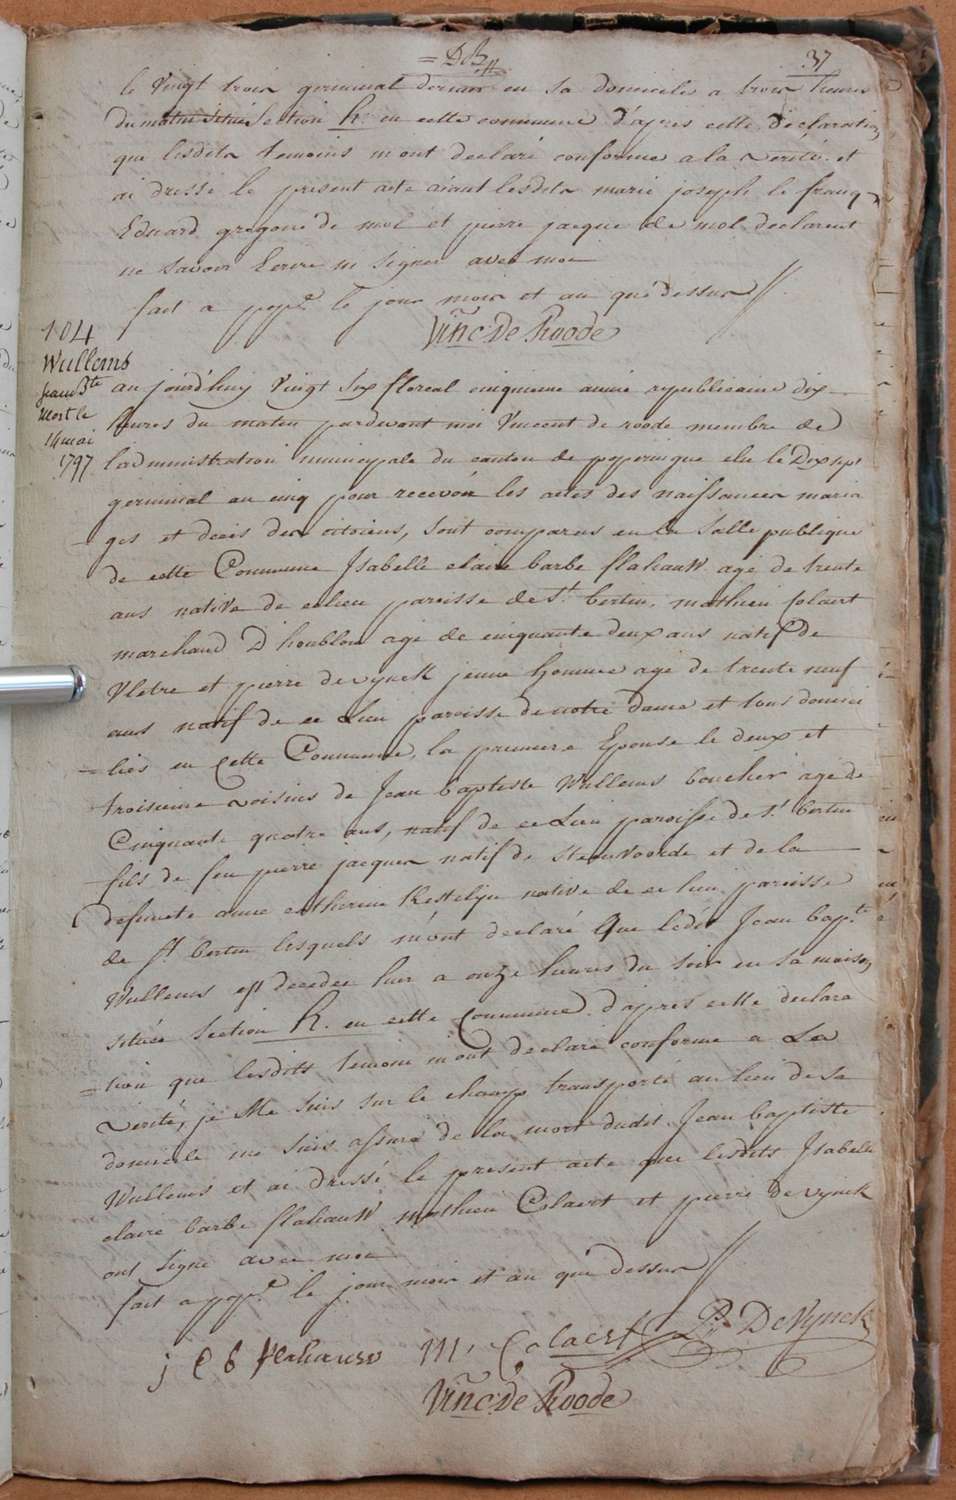 = DB 37
le Vingt trois germinal dernier en sa domicile a trois heures
du matin située Section K. en cette commune d'après cette declaration
que lesdits temoins m ont declaré conforme a la verité. et
ai dressé le present acte aiant lesdits marie joseph le francq
Eduard gregoire de mol et pierre jacque de mol declarent
ne savoir Ecrire ni Signer avec moi
fait a pop.e le jour mois et an que dessus //
Vinc De Roode
104
Wullems
jean Bte
Mort le
14 mai
1797
au jourd'huy Vingt Six floreal cinquieme année republicaine dix
heures du matin pardevant moi Vincent de roode membre de
l'administration municipale du canton de poperingue elu le Dix sept
germinal an cinq pour recevoir les actes des naissances maria
ges et decés des citoiens, sont comparus en la Salle publique
de cette Commune Isabelle claire barbe flahauw agé de trente
ans native de ce lieu paroisse de St bertin, mathieu Colaert
marchand D'houblon agé de cinquante deux ans natif de
Vletre et pierre devynck jeune homme agé de trente neuf
ans natif de ce Lieu paroisse de notre dame et tous domici
= liés en Cette Commune, la premiere Epouse le deux et
troisieme voisins de Jean baptiste Wullems boucher agé de
Cinquante quatre ans, natif de ce Lieu paroisse de St bertin
fils de feu pierre jacques natif de Steenvoorde et de la
defuncte anne catherine Kestelyn native de ce lieu paroisse
de St bertin lesquels m'ont declaré Que ledit Jean bapte
Wullems est decedé hier a onze heures du soir en sa maison
située Section K. en cette Commune. d'apres cette declara
= tion que lesdits temoins m'ont declaré conforme a La
verité, je Me suis sur le champ transporté au lieu de sa
domicile me suis assuré de la mort dudit Jean baptiste
Wullems et ai dressé le present acte que lesdits Isabelle
claire barbe flahauw mathieu Colaert et pierre devynck
ont signé avec moi
fait a pop.e le jour mois et an que dessus //
j C b flahauw M, Colaert P. De Vynck
Vinc De Roode